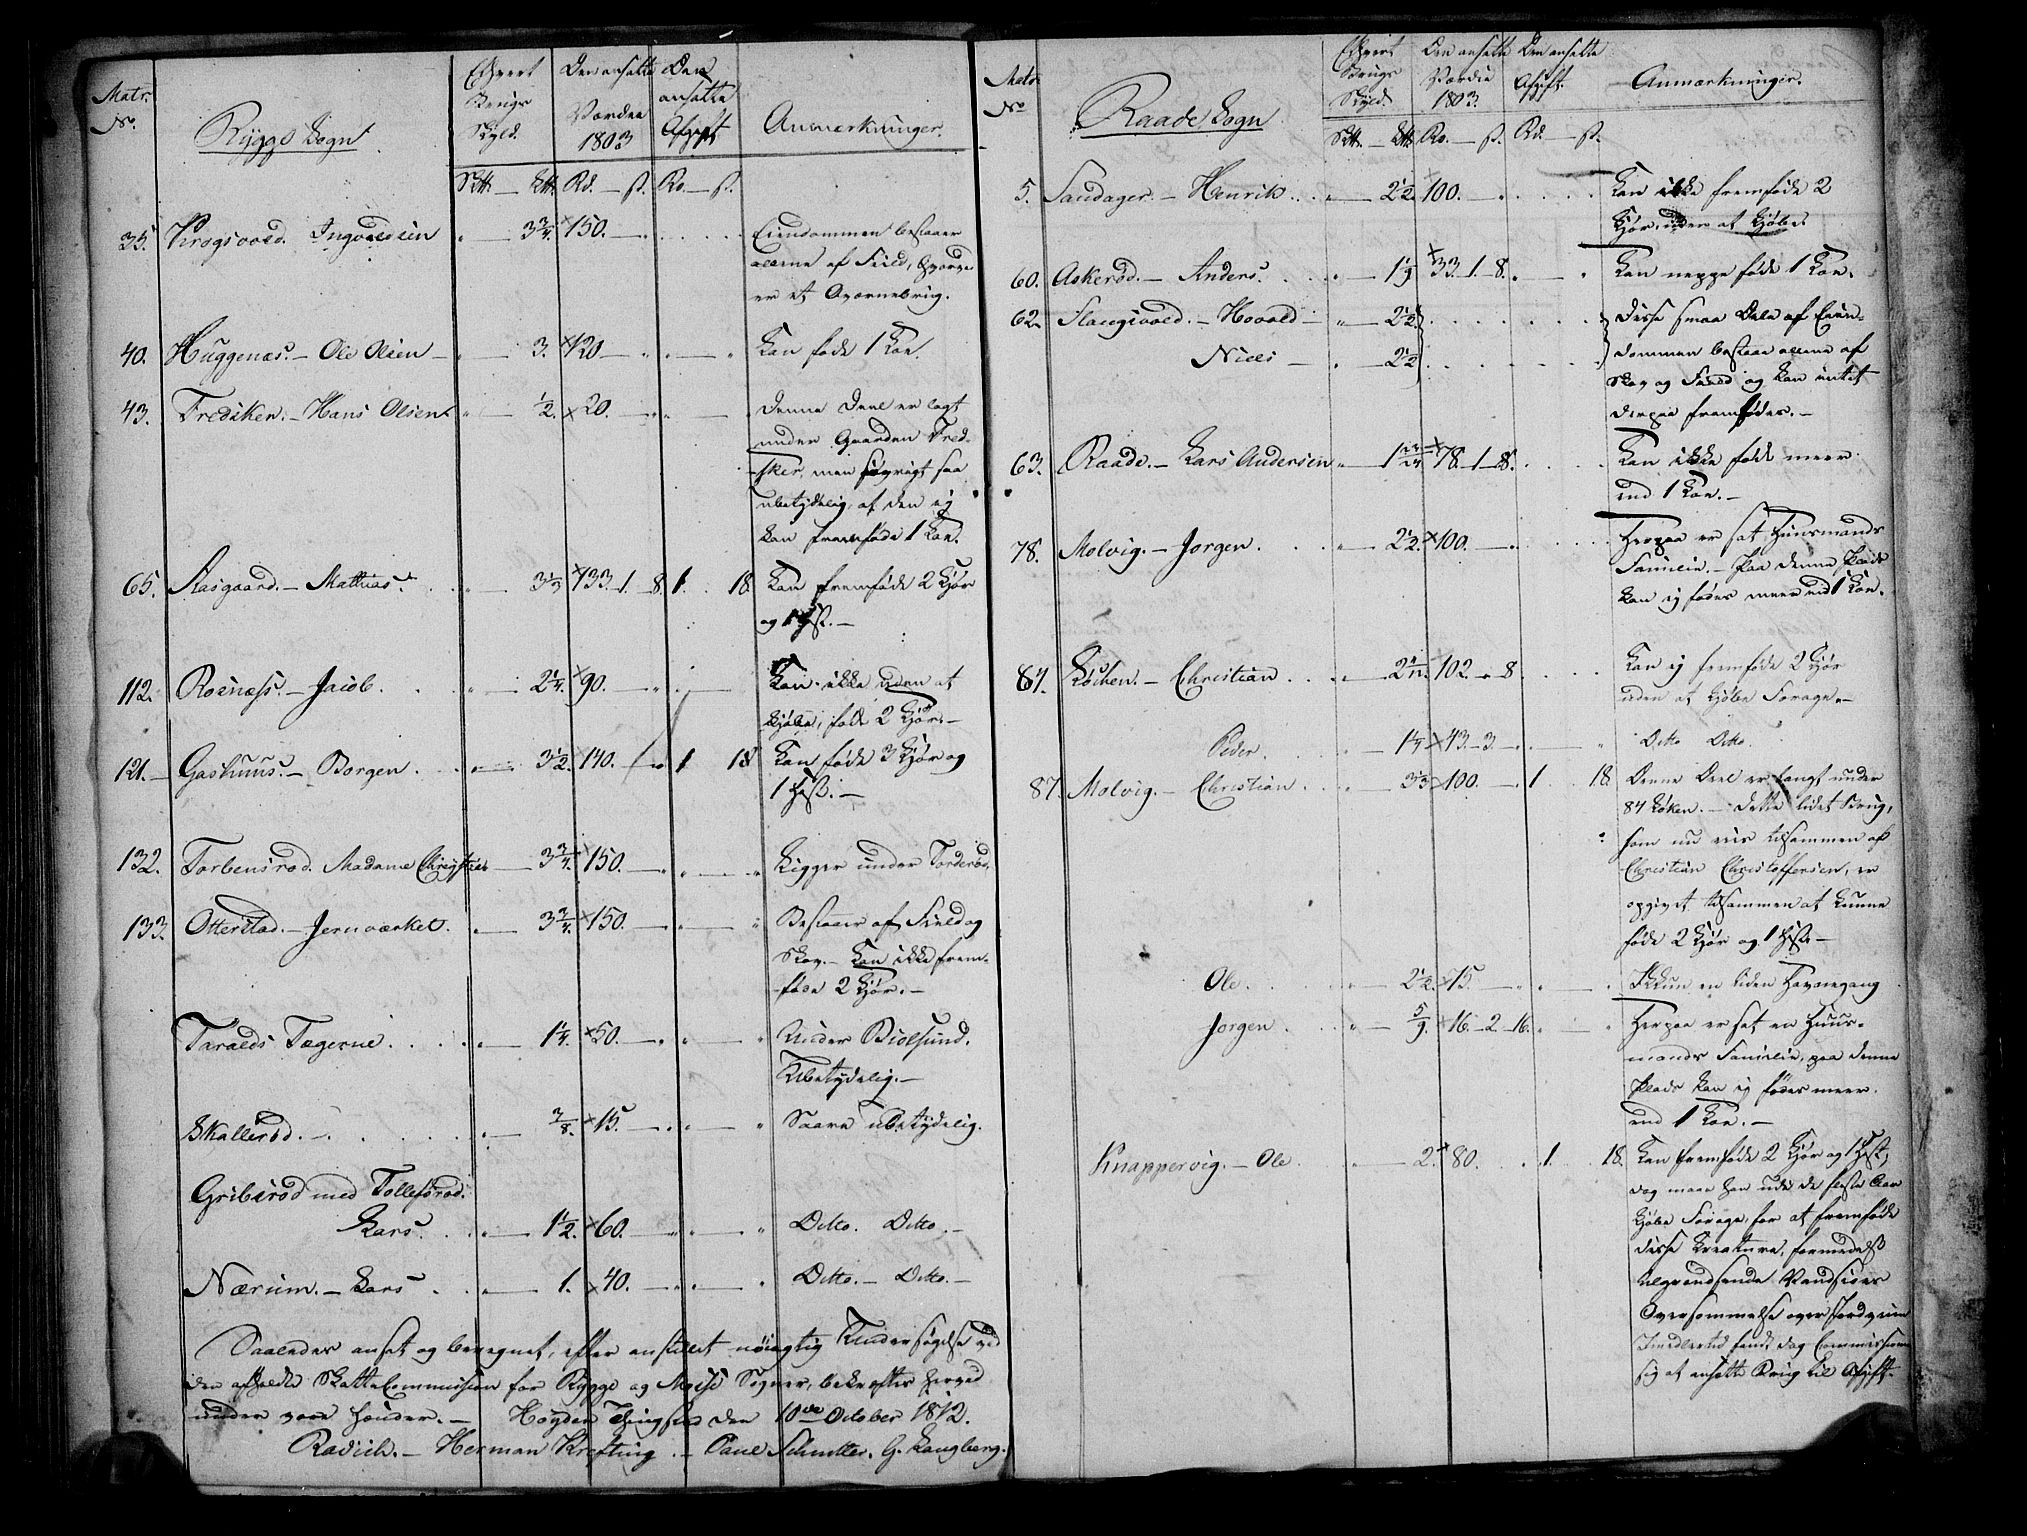 Matr. No.
Rygge Sogn
Ethvert Brugs Skyld.
Den ansatte Værdie 1803
Den ansatte Afgift
Anmærkninger.
Sk℔. — ℔. Rd. — ß. Rd. — ß.
35. Krogsvold. Ingvaldsen " — 3 3/4. × 150. — " Eiendommen bestaaer
allene af Field, hvorpaa
er et Qværnebrug.
40. Huggenæs. — Ole Olsen — " — 3. × 120 — " " — " Kan føde 1 Koe.
43. Fredsken. — Hans Olsen " — 1/2. × 20. — " " — " Denne Deel er lagt
under Gaarden Fred-
sker, men saa
ubetydelig, at den ej
kan fremføde 1 Koe.
65. Aasgaard. — Mathias. " — 3 1/3 × 133. 1. 8. 1. 18. Kan fremføde 2 Kjør
og 1 Hest. —
112. Rosnæss. — Jacob. " — 2 1/4. × 90. — " " — Kan ikke uden at
kjøbe, føde 2 Kjør. —
121. — Gashuus. — Borgen. " — 3 1/2. × 140. — " 1 18 Kan føde 3 Kjør og
1 Hest. —
132. Torbensrød. Madame Chrystie — 3 3/4. × 150. — " " — " Ligger under Torderød.
133. Otterstad. — Jernværket. " — 3 3/4. × 150. — " " — " Bestaaer af Field og
Skov. — Kan ikke frem-
føde 2 Kjør. —
Taralds Tægerne. " — 1 1/4. × 50. — " " — " Under Bielsund.
Ubetydelig. —
Skallerød. — " — 3/8. × 15. — " " — " Saare ubetydelig.
Gribsrød med Tollefsrød.
Lars. " — 1 1/2. × 60. — " " — " Ditto. Ditto. —
Nærum. — Lars " — 1. × 40. — " " — " Ditto. — Ditto. —
Saaledes ansat og beregnet, efter anstillet nøiagtig Undersøgelse ved
den afholdte SkatteCommission for Rygge og Moss Sogner, bekræftes herved
under vore Hænder. — Høyden Thingsted den 10de October 1812.
Radich. — Herman Krefting. — Paul Schmetter. G. Langberg.
Matr. No
Raade Sogn
Ethvert Brugs Skyld
Den ansatte Værdie 1803.
Den ansatte Afgift.
Anmærkninger.
Sk℔. — ℔. Rd. — ß. Rd. — ß.
5. Sandager. — Henrik " — 2 1/2 × 100. Kan ikke fremføde 2
Kjør, uden at kjøbe.
60. Askerød. — Anders. " — 1 1/9 × 33. 1. 8. " — " Kan neppe føde 1 Koe.
62. Slangsvold. — Hovold — " — 2 1/2 Disse smaa Dele af Eien-
Niels — " — 2 1/2 dommen bestaae allene af
Skov og Field og kan intet
derpaa fremfødes. —
63. Raade. — Lars Andersen " — 1 23/24 × 78. 1. 8. Kan ikke føde meer
end 1 Koe. —
78. Molvig. — Jorgen. " — 2 1/2. × 100. — " Herpaa er sat Huusmands
Familie. — Paa denne Plads
kan ej fødes meere end 1 Koe.
84. Køchen. — Christian " — × 102. " 8 Kan ej fremføde 2 Kjør
uden at kjøbe Forage. —
Peder. " — 1 1/4 × 43. 3. " — " Ditto Ditto.
87. Molvig. — Christian " — × 100. — " 1 18. Denne Deel er langt under
84 Køken. — Dette lidet Brug,
som nu eies tilsammen af
Christian Christoffersen, er
opgivet tilsammen at kunne
føde 2 Kjør og 1 Hest —
Ole. " — 2 1/2. × 15. — " " — " Ikkun en liden Havnegang
Jorgen. " — 5/9. × 16. 2. 16. " — " Herpaa er sat en Huus-
mands Familie, paa denne
Plads kan ej fødes meer
end 1 Koe. —
Knappervig. — Ole. " — 2. × 80. " 1. 18. Kan fremføde 2 Kjør og 1 Hest,
dog maae han udi de fleste Aar
kjøbe Forage, for at fremføde
disse Kreature, formedelst
tilgrændsende Vandsjøes
Oversvømmelse over Jordveien
Imidlertid fandt dog Commissionen
sig at ansætte Brug til Afgift.